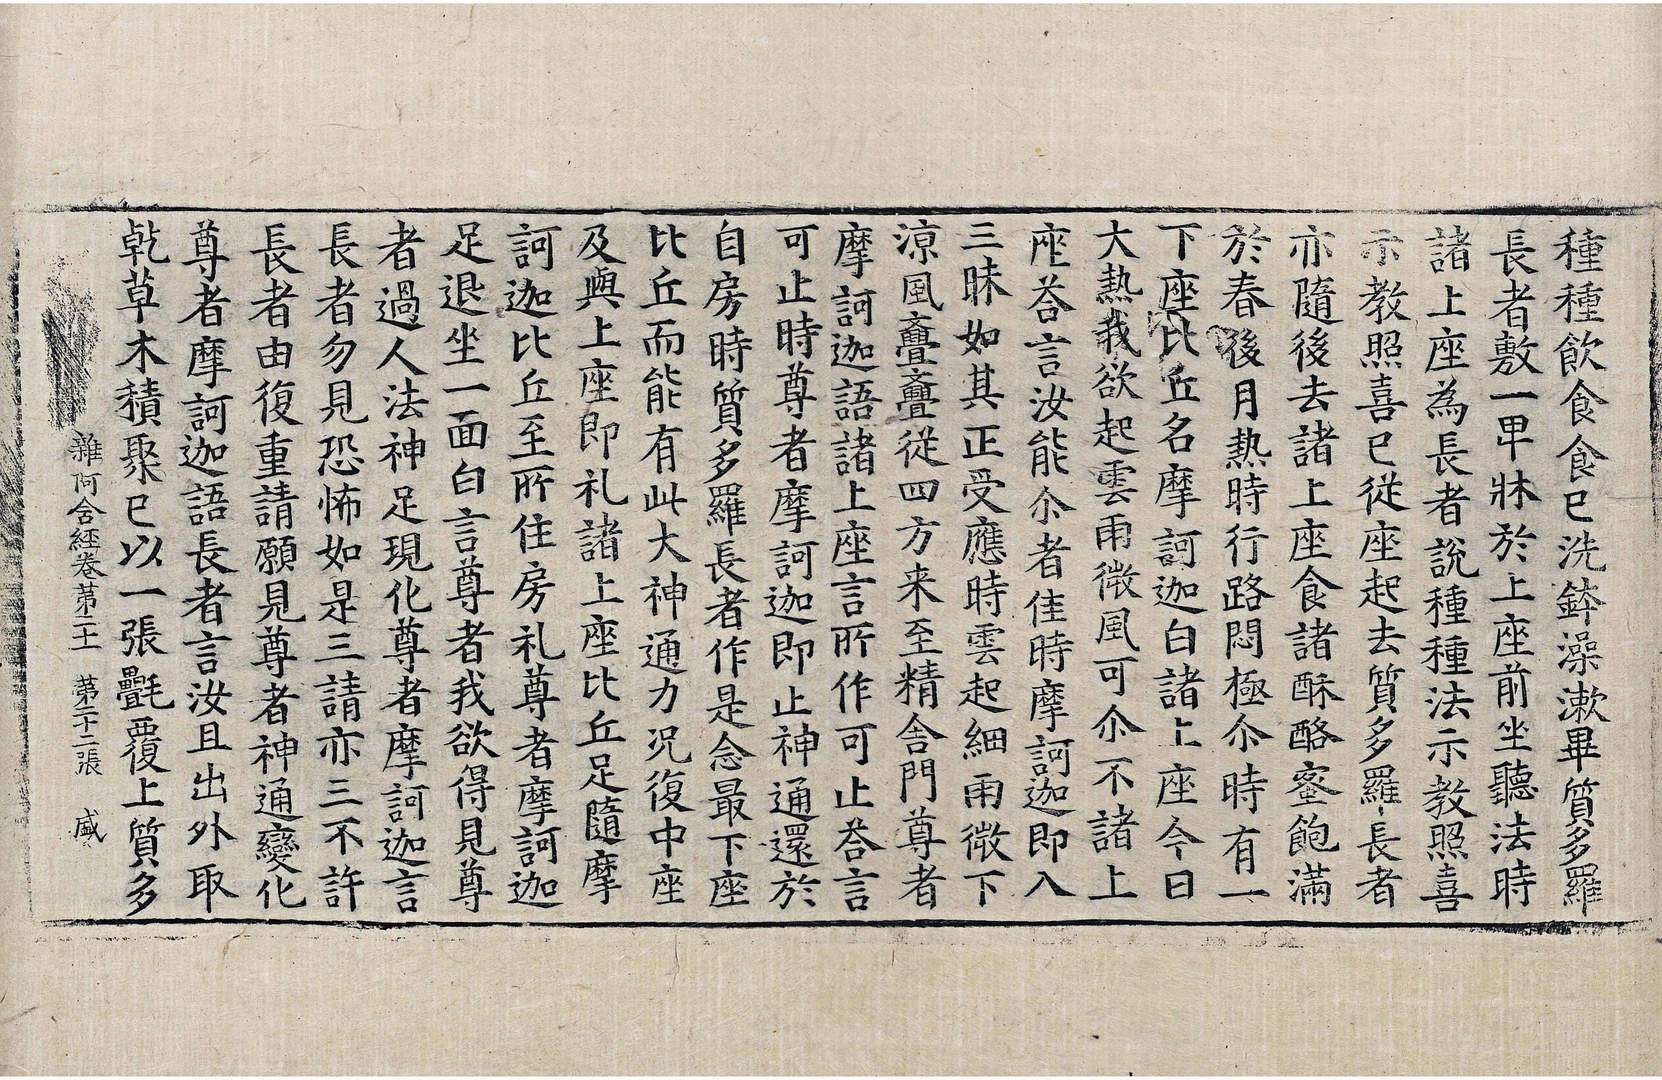 種種飲食食已洗鉢澡漱畢質多羅
長者敷一卑牀於上座前坐聽法時
諸上座為長者說種種法示教照喜
示教照喜已從座起去質多羅長者
亦隨後去諸上座食諸酥酪蜜飽滿
於春後月熱時行路悶極尒時有一
下座比丘名摩訶迦白諸上座今日
大熱我欲起雲雨微風可尒不諸上
座荅言汝能尒者佳時摩訶迦即入
三昧如其正受應時雲起細雨微下
涼風亹亹從四方来至精舎門尊者
摩訶迦語諸上座言所作可止荅言
可止時尊者摩訶迦即止神通還於
自房時質多羅長者作是念最下座
比丘而能有此大神通力况復中座
及與上座即礼諸上座比丘足隨摩
訶迦比丘至所住房礼尊者摩訶迦
足退坐一面白言尊者我欲得見尊
者過人法神足現化尊者摩訶迦言
長者勿見恐怖如是三請亦三不許
長者由復重請願見尊者神通變化
尊者摩訶迦語長者言汝且出外取
乹草木積聚已以一張㲲覆上質多
雜阿含經卷苐二十一 苐二十二張 盛